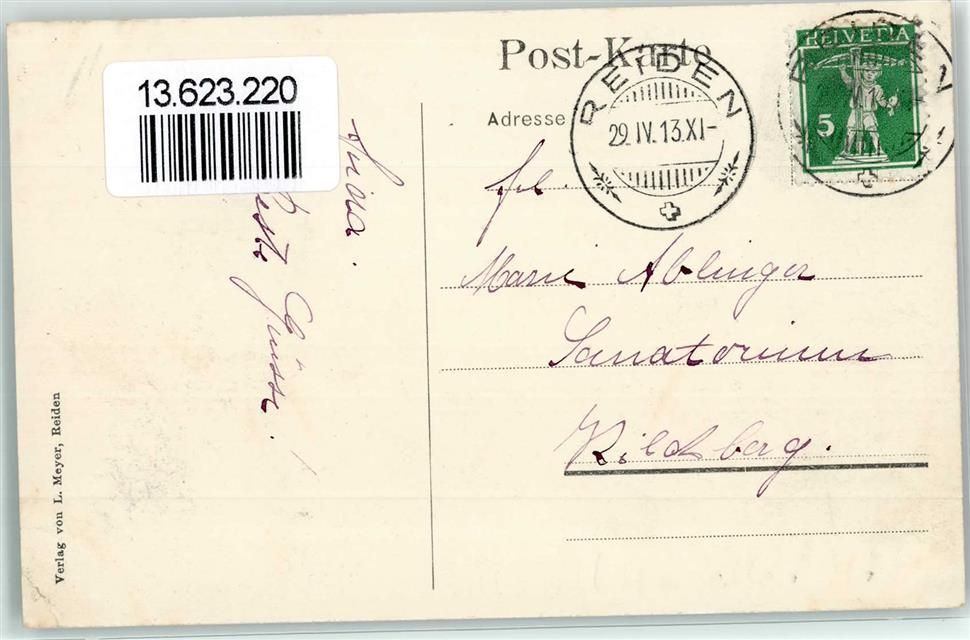 Post-Karte
Adresse
HELVETIA
5
REIDEN
29.IV.13.XI-
13.623.220
Beste Grüsse!
Frl.
Marie Ablinger
Sanatorium
Kilchberg.
Verlag von L. Meyer, Reiden